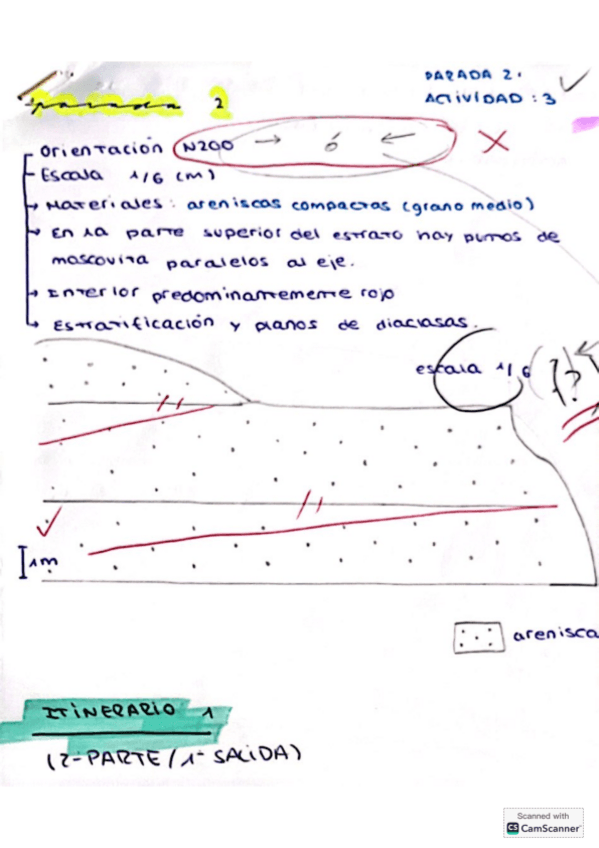 PARADA 2.
ACTIVIDAD : 3
parada 2
Orientación N200 → ó ←
Escala 1/6 (m)
→ Materiales: areniscas compactas (grano medio)
→ En la parte superior del estrato hay puntos de
moscovita paralelos al eje.
→ Interior predominantemente rojo
→ Estratificación y planos de diaclasas.
escala 1/6 ( )?
1m
arenisca
ITINERARIO 1
(2ª PARTE / 1ª SALIDA)
Scanned with
CS CamScanner